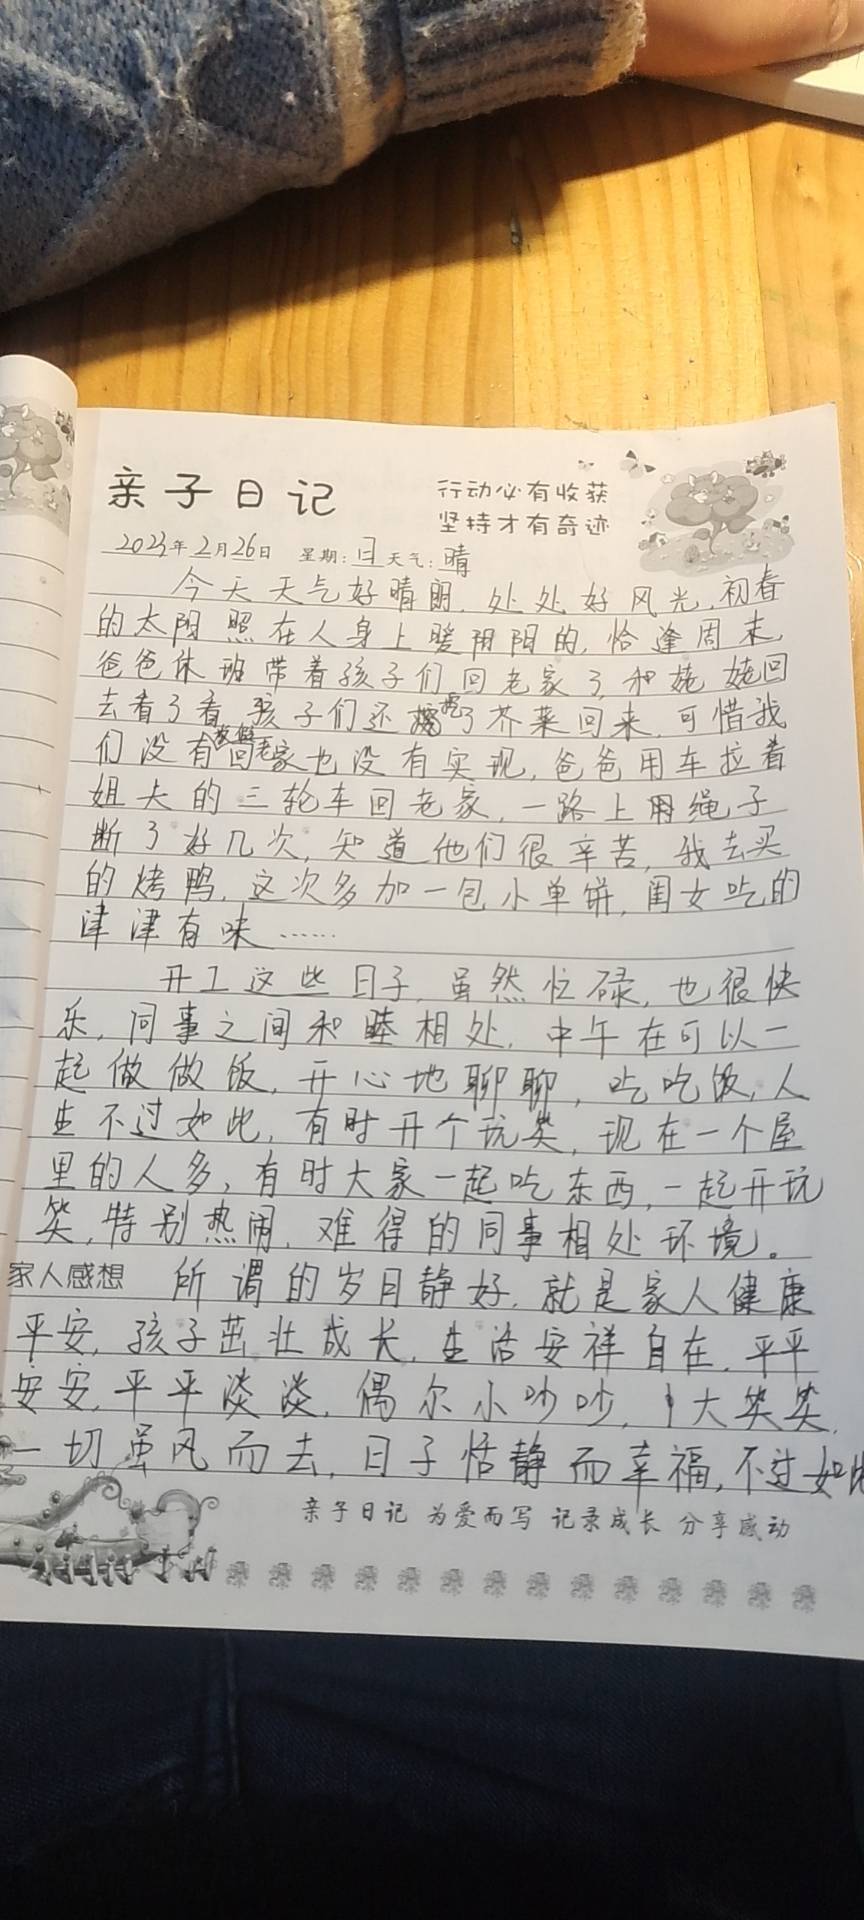 亲子日记
行动必有收获
坚持才有奇迹
2023年2月26日 星期:日 天气:晴
今天天气好晴朗,处处好风光,初春
的太阳照在人身上暖阳阳的,恰逢周末,
爸爸休班带着孩子们回老家了,和姥姥回
去看了看,孩子们还挖了芥菜回来,可惜我
们没有回老家也没有实现,爸爸用车拉着
姐夫的三轮车回老家,一路上用绳子
断了好几次,知道他们很辛苦,我去买
的烤鸭,这次多加一包小单饼,闺女吃的
津津有味……
开工这些日子,虽然忙碌,也很快
乐,同事之间和睦相处,中午在可以一
起做做饭,开心地聊聊,吃吃饭,人
生不过如此,有时开个玩笑,现在一个屋
里的人多,有时大家一起吃东西,一起开玩
笑,特别热闹,难得的同事相处环境。
家人感想 所谓的岁月静好,就是家人健康
平安,孩子茁壮成长,生活安祥自在,平平
安安,平平淡淡,偶尔小吵吵,大笑笑,
一切虽风而去,日子恬静而幸福,不过如此
亲子日记 为爱而写 记录成长 分享感动